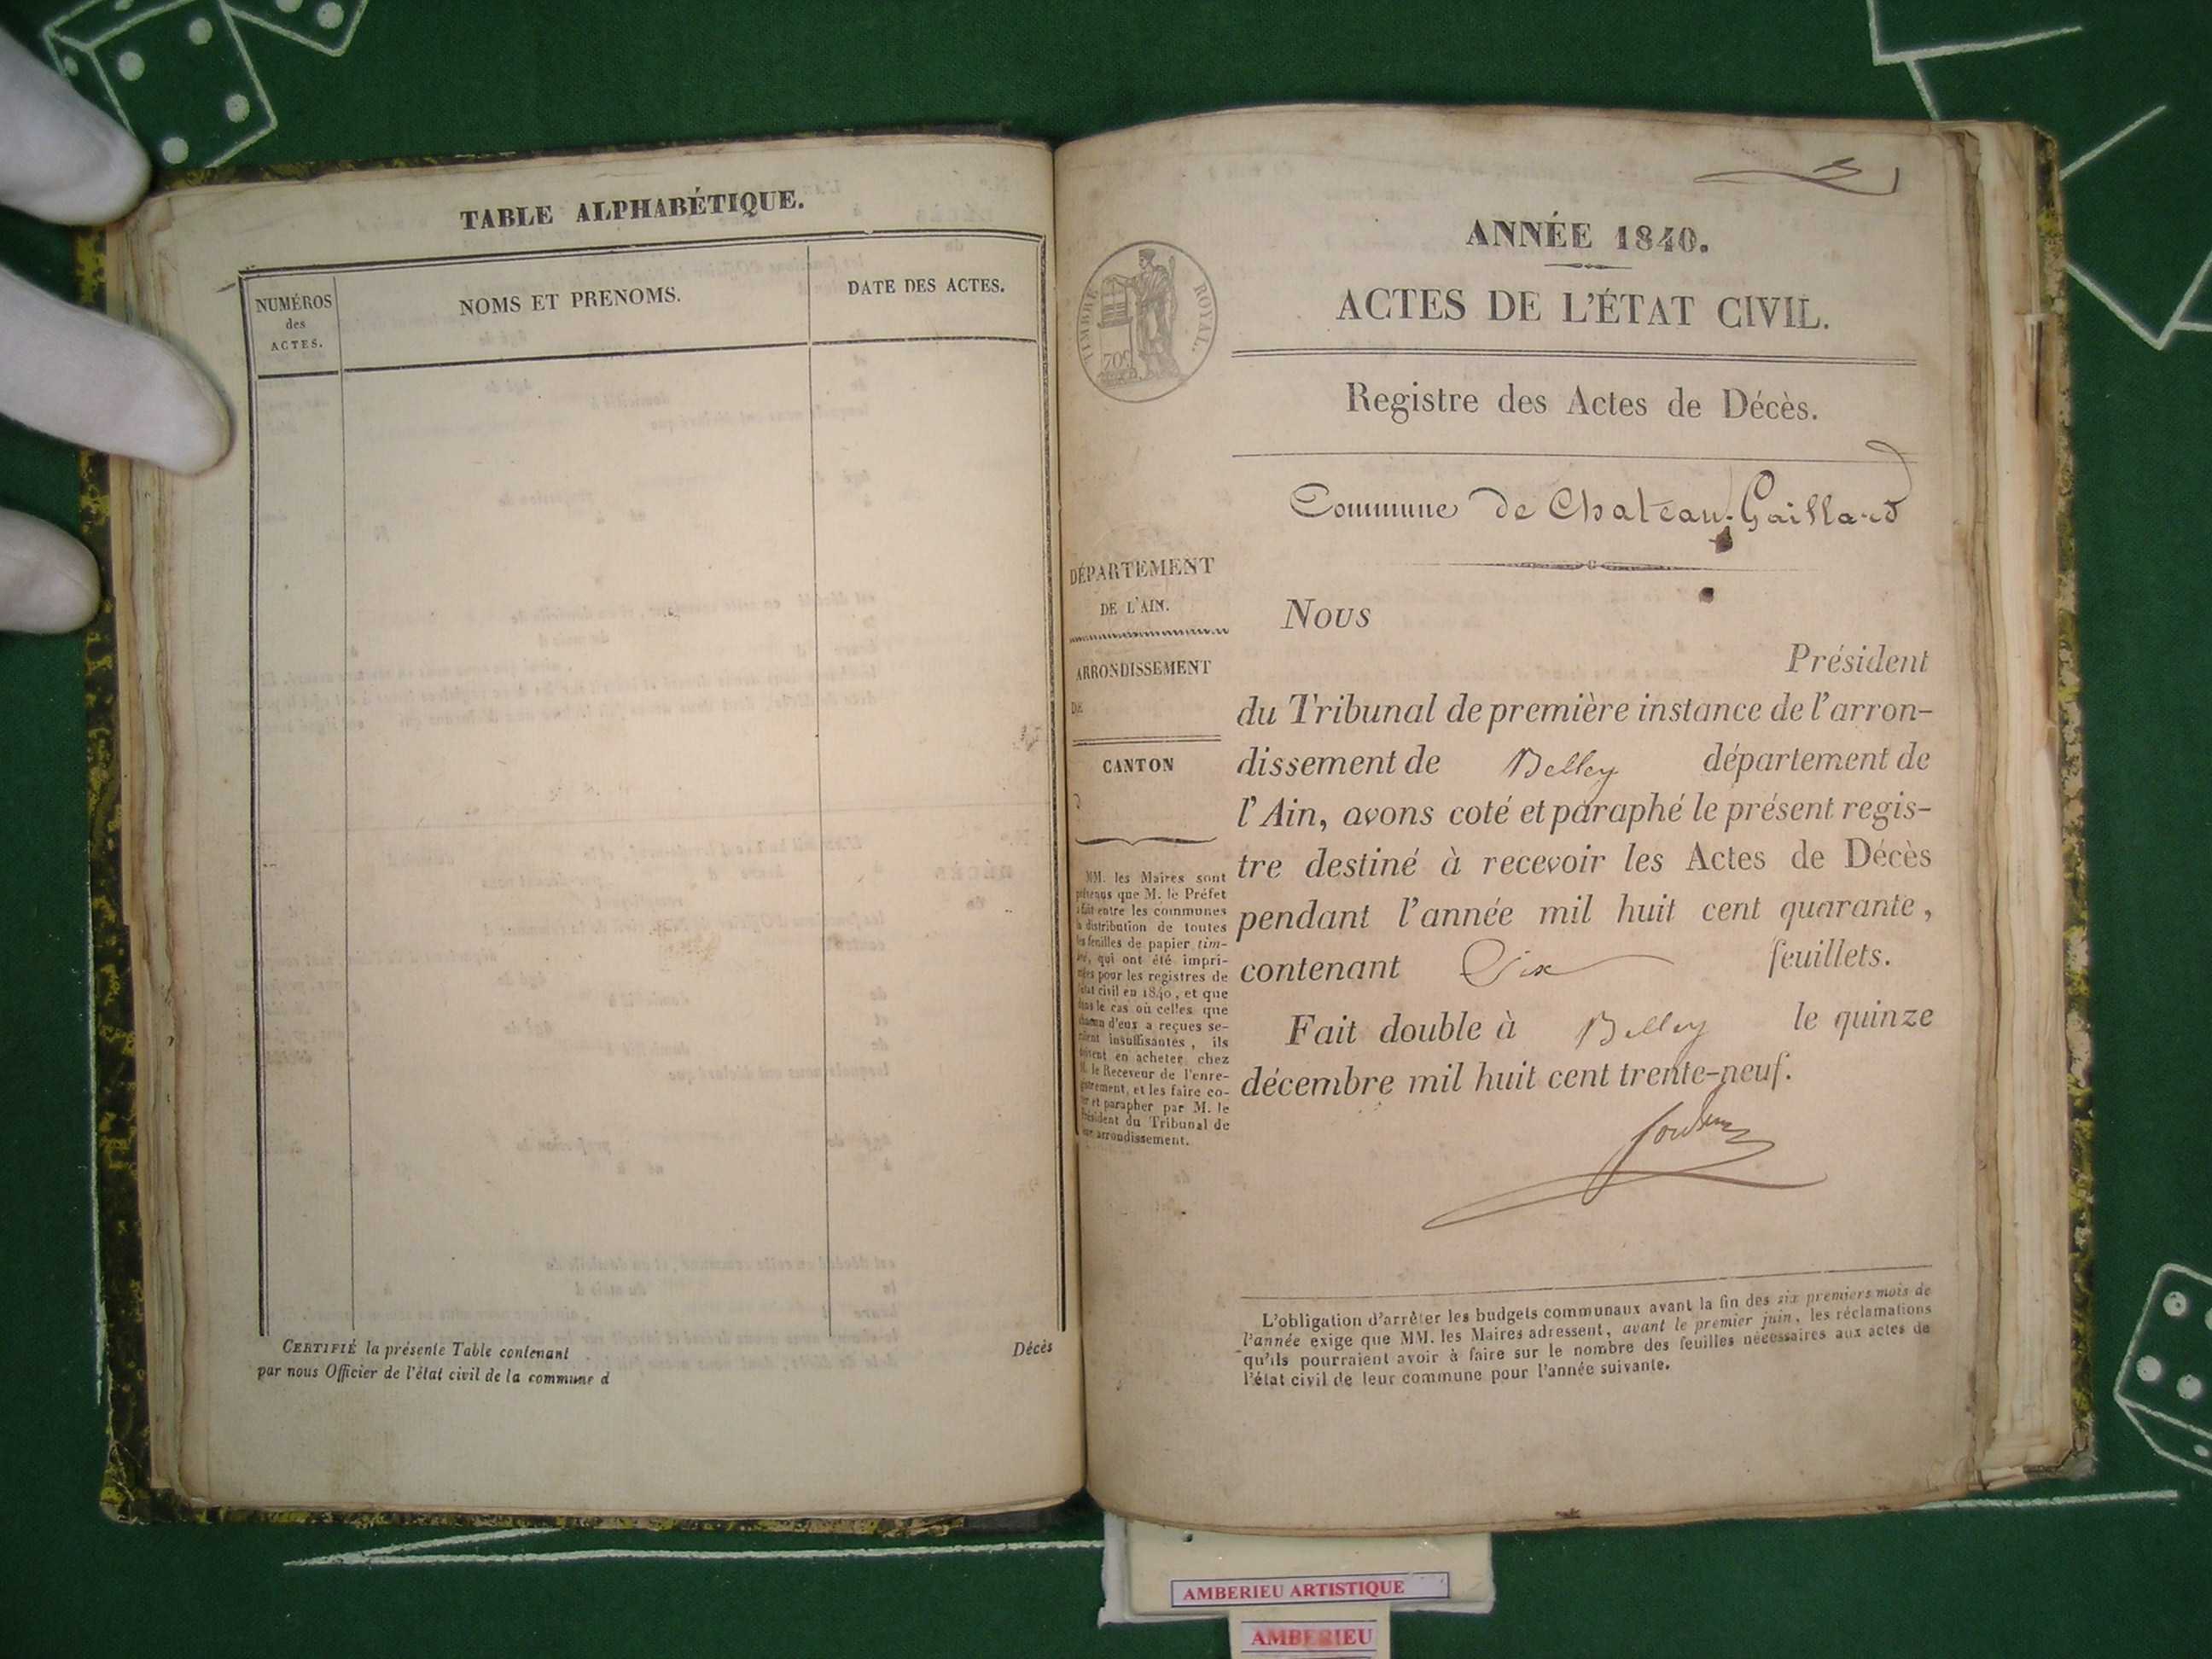 TABLE ALPHABÉTIQUE.
NUMÉROS
des
ACTES.
NOMS ET PRENOMS.
DATE DES ACTES.
CERTIFIÉ la présente Table contenant
Décès
par nous Officier de l'état civil de la commune d
ANNÉE 1840.
ACTES DE L'ÉTAT CIVIL.
TIMBRE ROYAL.
Registre des Actes de Décès.
Commune de Chateau-Gaillard
DÉPARTEMENT
DE L'AIN.
ARRONDISSEMENT
DE
CANTON
MM. les Maires sont
que M. le Préfet
fait entre les communes
distribution de toutes
feuilles de papier tim-
qui ont été impri-
pour les registres de
civil en 1840, et que
le cas où celles que
d'eux a reçues se-
insuffisantes, ils
en acheter chez
le Receveur de l'enre-
et les faire co-
et parapher par M. le
du Tribunal de
arrondissement.
Nous
Président
du Tribunal de première instance de l'arron-
dissement de Belley département de
l'Ain, avons coté et paraphé le présent regis-
tre destiné à recevoir les Actes de Décès
pendant l'année mil huit cent quarante,
contenant Six feuillets.
Fait double à Belley le quinze
décembre mil huit cent trente-neuf.
L'obligation d'arrêter les budgets communaux avant la fin des six premiers mois de
l'année exige que MM. les Maires adressent, avant le premier juin, les réclamations
qu'ils pourraient avoir à faire sur le nombre des feuilles nécessaires aux actes de
l'état civil de leur commune pour l'année suivante.
AMBERIEU ARTISTIQUE
AMBERIEU